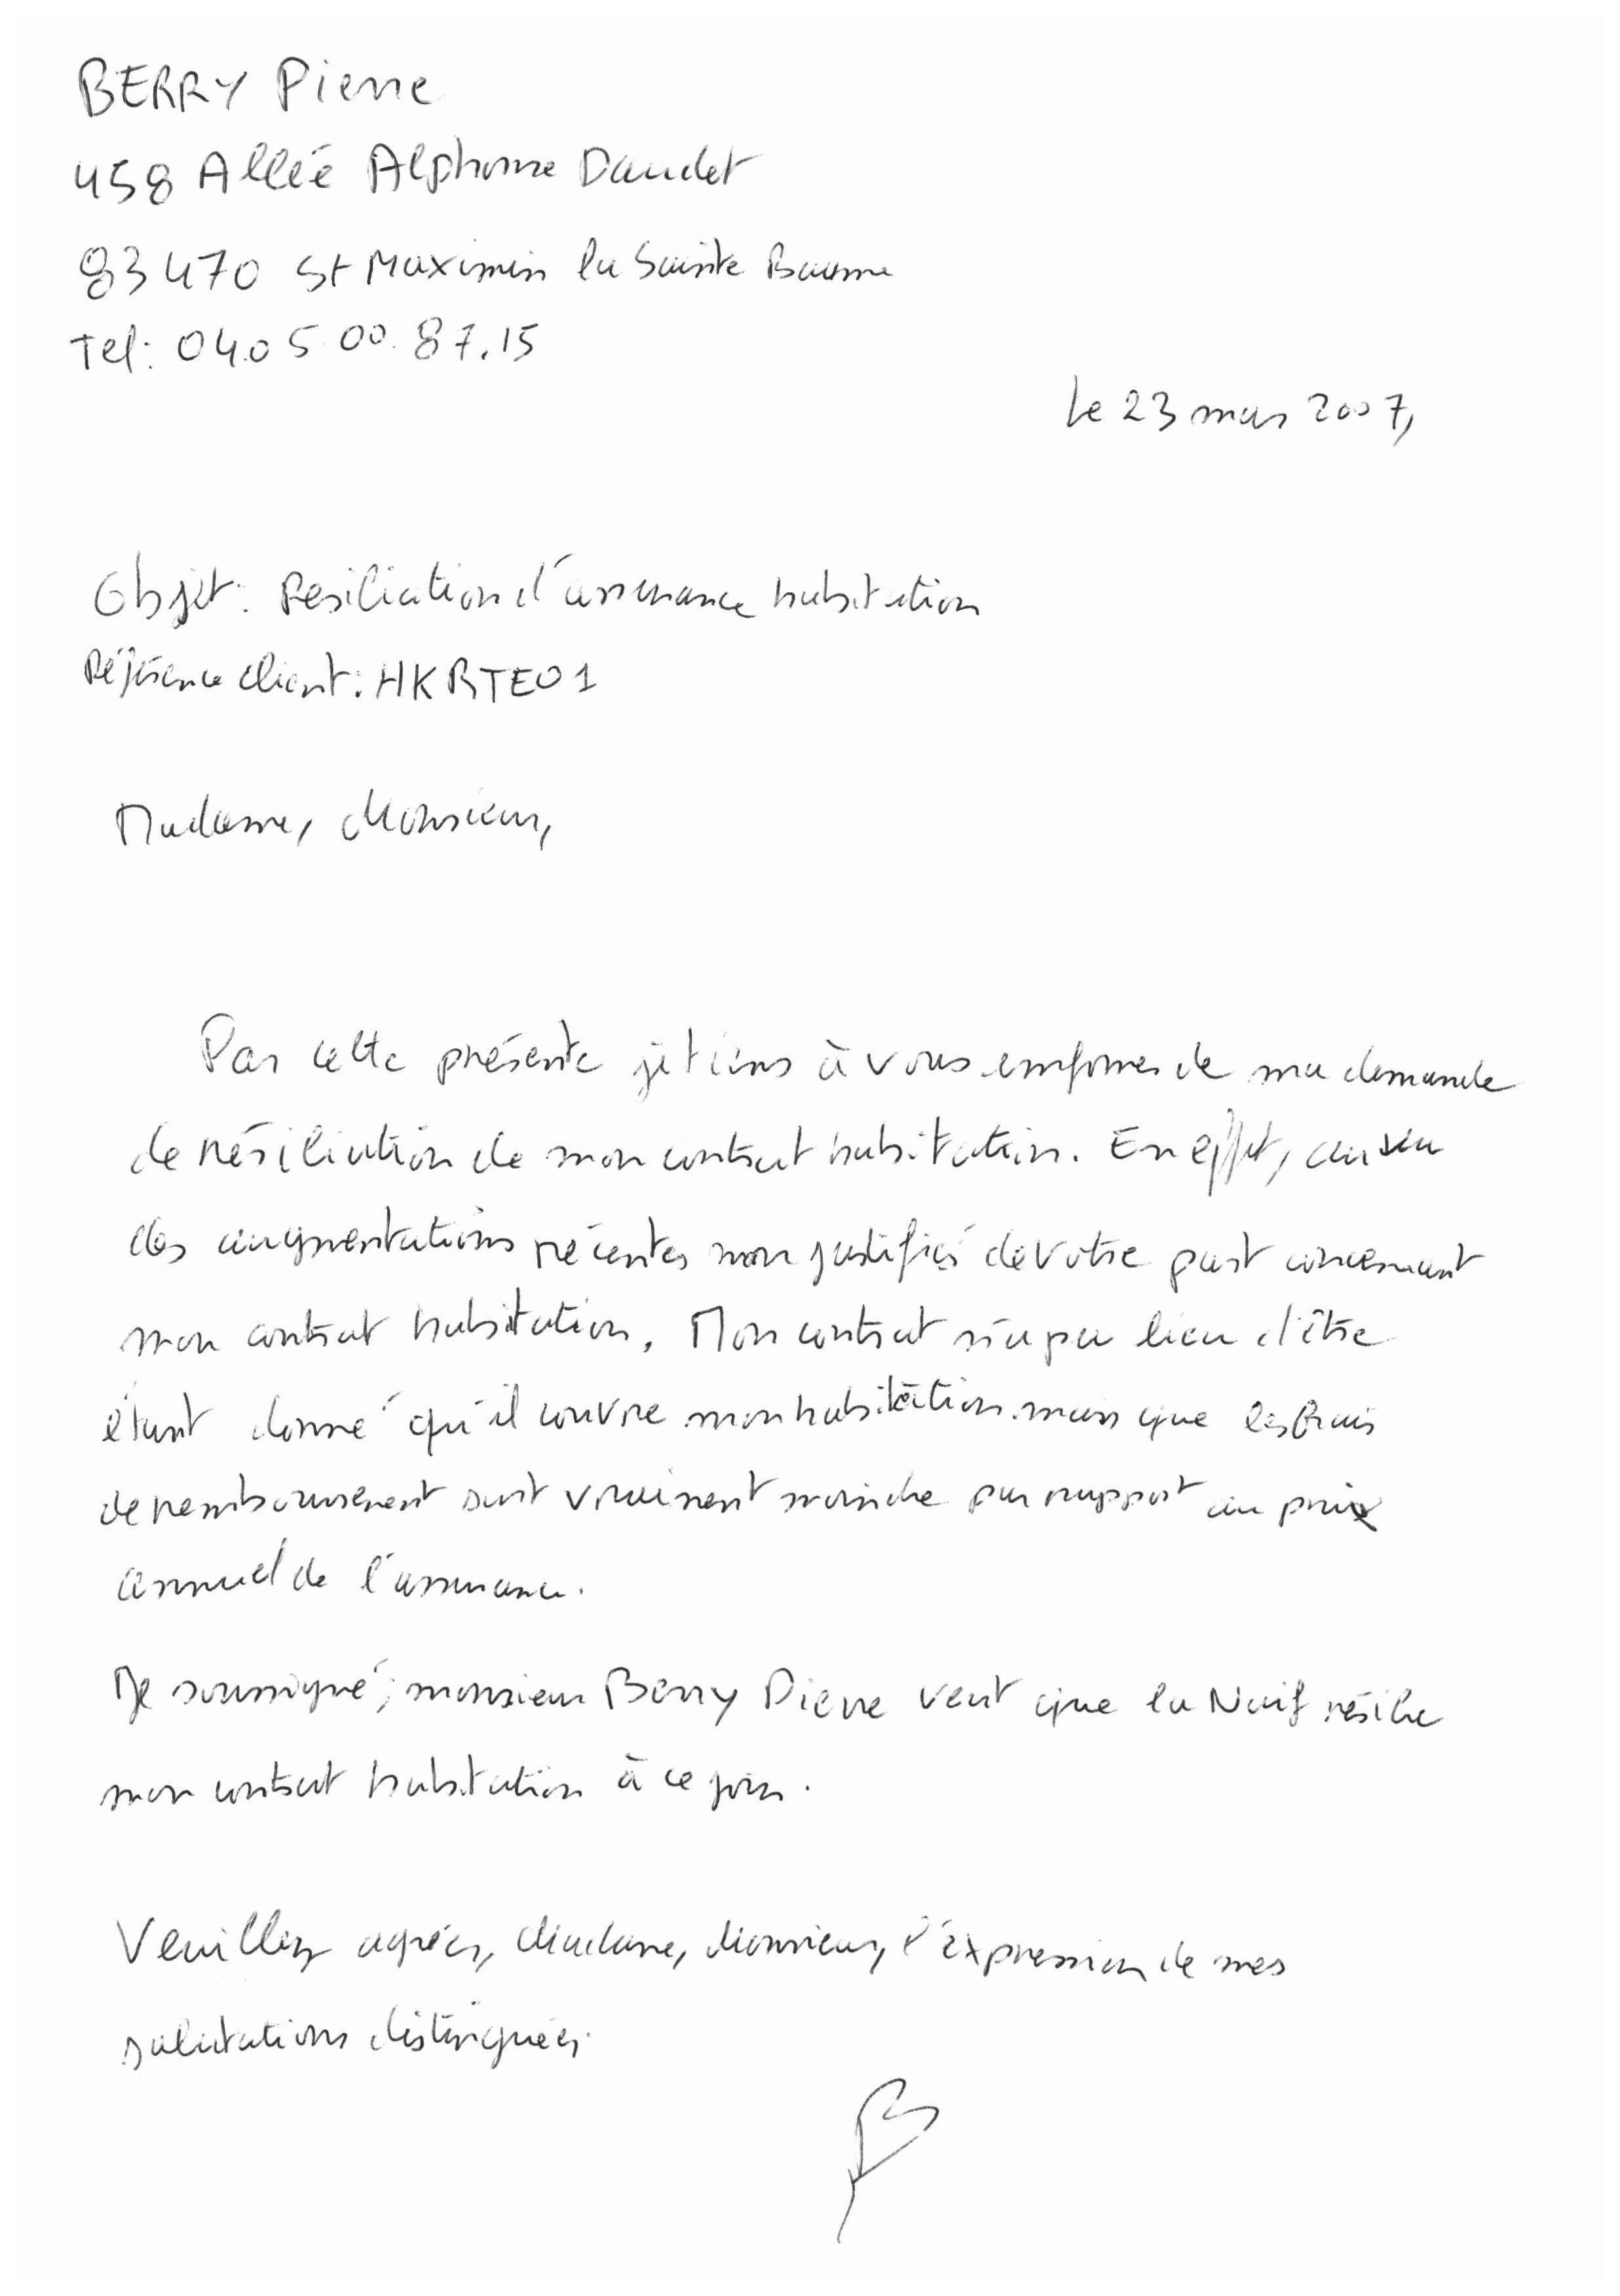 BERRY Pierre
458 Allée Alphonse Daudet
83470 St Maximin la Sainte Baume
Tel: 04.05.00.87.15
le 23 mars 2007,
Objet: Résiliation d'assurance habitation
Référence client: HKRTE01
Madame, Monsieur,
Par cette présente je tiens à vous emformer de ma demande
de résiliation de mon contrat habitation. En effet, au vu
des augmentations récentes non justifiés de votre part concernant
mon contrat habitation. Mon contrat n'a pa lieu d'être
étant donné qu'il couvre mon habitation mais que les frais
de remboursement sont vraiment moindre par rapport au prix
annuel de l'assurance.
Je soussigné, monsieur Berry Pierre veut que la Maif résilie
mon contrat habitation à ce jour.
Veuillez agréer, Madame, Monsieur, l'expression de mes
salutations distinguées.